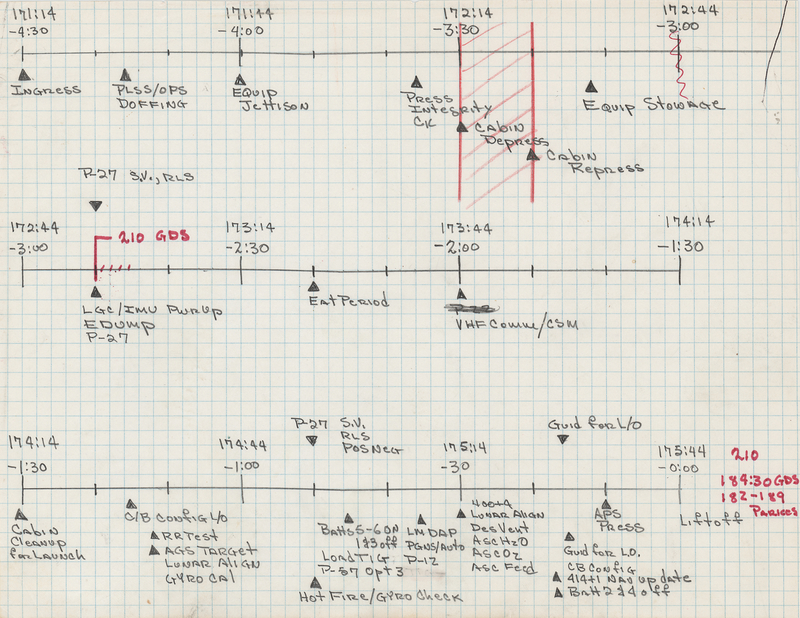 171:14 171:44 172:14 172:44
-4:30 -4:00 -3:30 -3:00
INGRESS
PLSS/OPS
DOFFING
EQUIP
Jettison
PRESS
INTEGRITY
CK
CABIN
Depress
CABIN
Repress
EQUIP STOWAGE
P-27 S.V., RLS
172:44 173:14 173:44 174:14
-3:00 -2:30 -2:00 -1:30
210 GDS
LGC/IMU PWR UP
EDUMP
P-27
EAT PERIOD
VHF Comm/CSM
P-27 S.V.
RLS
POS NEG
Guid for L/O
174:14 174:44 175:14 175:44
-1:30 -1:00 -30 -0:00
210
184:30 GDS
182-189
PARKES
Liftoff
CABIN
CLEANUP
for LAUNCH
C/B CONFIG L/O
RR TEST
AGS TARGET
LUNAR ALIGN
GYRO CAL
BATTS 5-6 ON
1&3 off
LOAD TIG
P-57 OPT 3
HOT FIRE/GYRO CHECK
LM DAP
PGNS/AUTO
P-12
400+4
LUNAR ALIGN
Des Vent
ASC H2O
ASC O2
ASC Feed
APS
PRESS
Guid for L.O.
CB CONFIG
414+1 NAV update
BATT 2&4 off